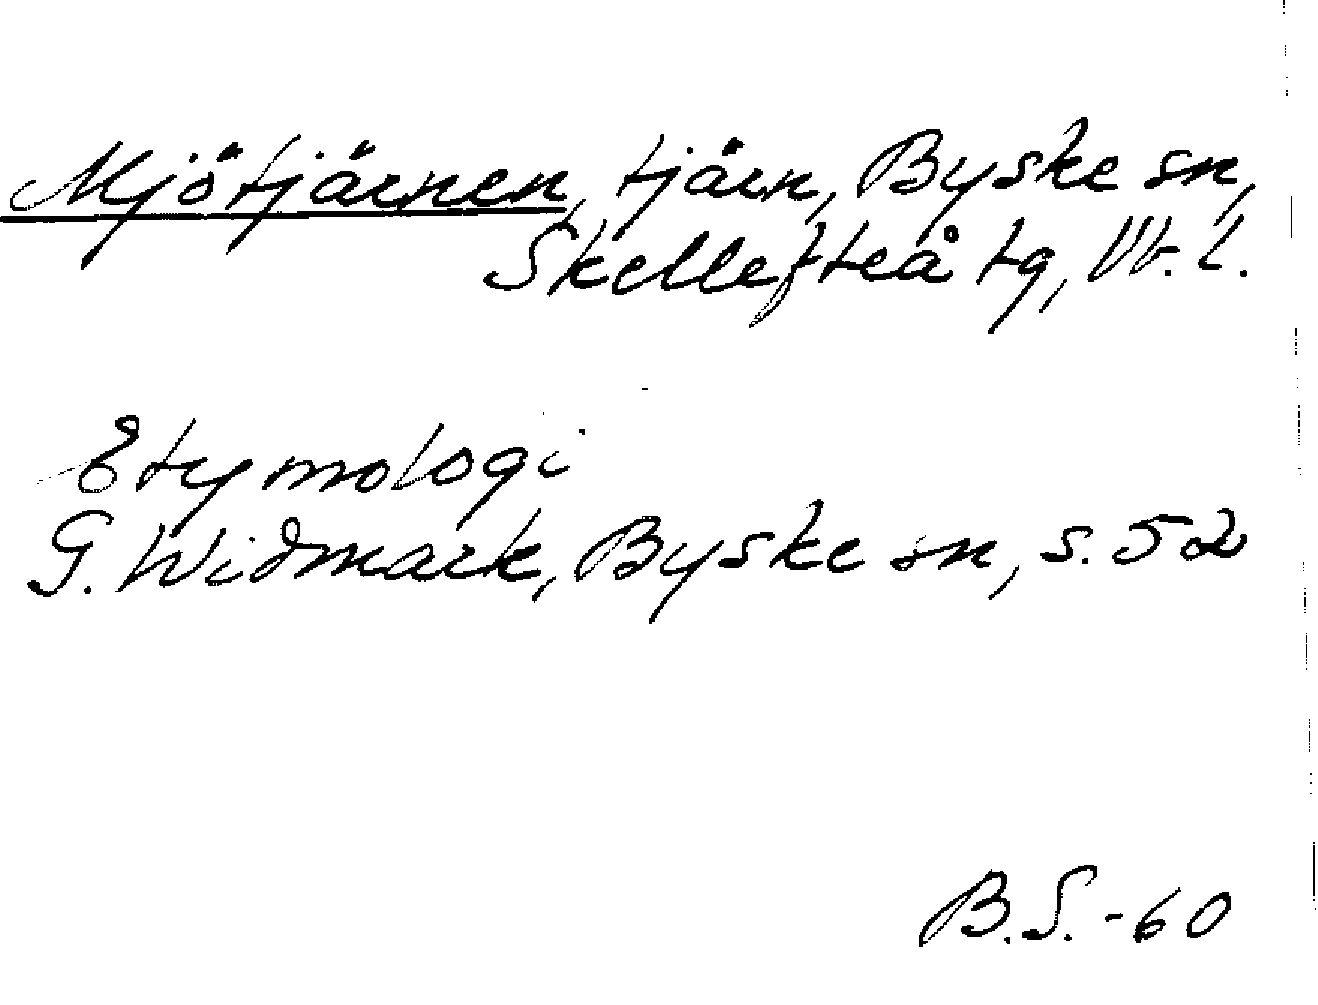 Mjötjärnen, tjärn, Byske sn,
Skellefteå tg, Vb. l.
Etymologi
G. Widmark, Byske sn, s. 52
B.S. -60